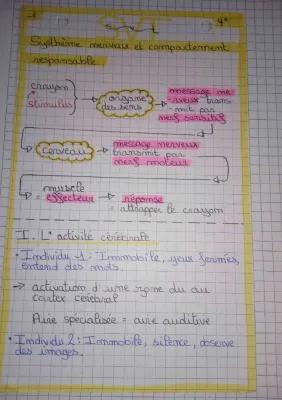 1
SVT
4e
Système nerveux et comportement
responsable.
crayon
↓
stimulus
organe
des sens
message ne
-rveux trans
-mit par
nerf sensitif
cerveau
message nerveux
transmit par
nerf moteur
muscle
= effecteur
réponse
= attrapper le crayon
I. L'activité cérébrale
• Individu 1 : Immobile, yeux fermés,
entend des mots.
→ activation d'une zone du au
cortex cérébral
Aire spécialisée = aire auditive
• Individu 2 : Immobile, silence, observe
des images.